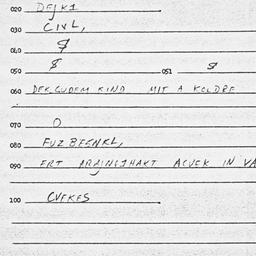 020 DEJKI
030 CIVL,
040 $
050 $ 051 $
060 DEK GUDEM KIND MIT A KOLDRE
070 O
080 FUZBEENKL,
090 ERT ARAJNGEHAKT ACVEK IN VA
100 CVEKES